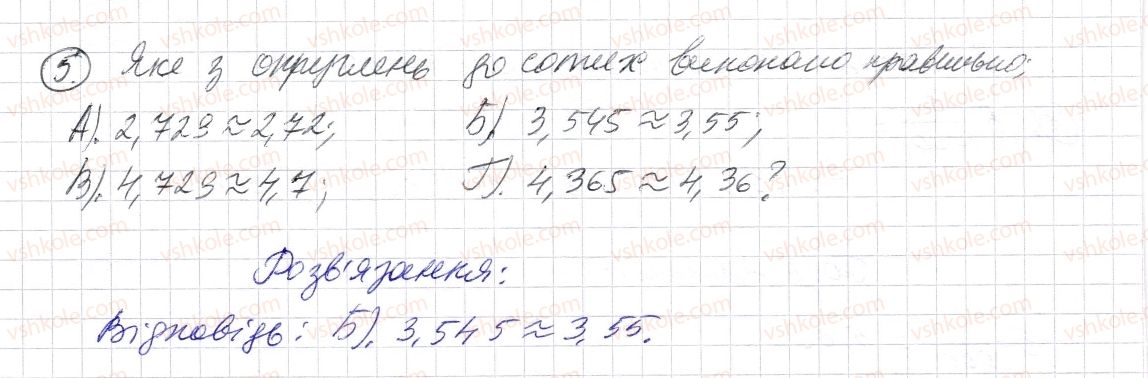 5. Яке з округлень до сотих виконано правильно:
А). 2,729≈2,72; Б). 3,545≈3,55;
В). 4,729≈4,7; Г). 4,365≈4,36?
Розв'язання:
Відповідь: Б). 3,545≈3,55.